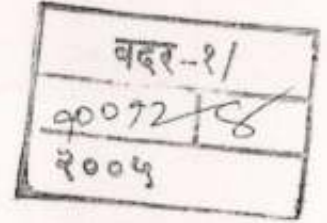 वदर-१/
१००१२ ८
२००५